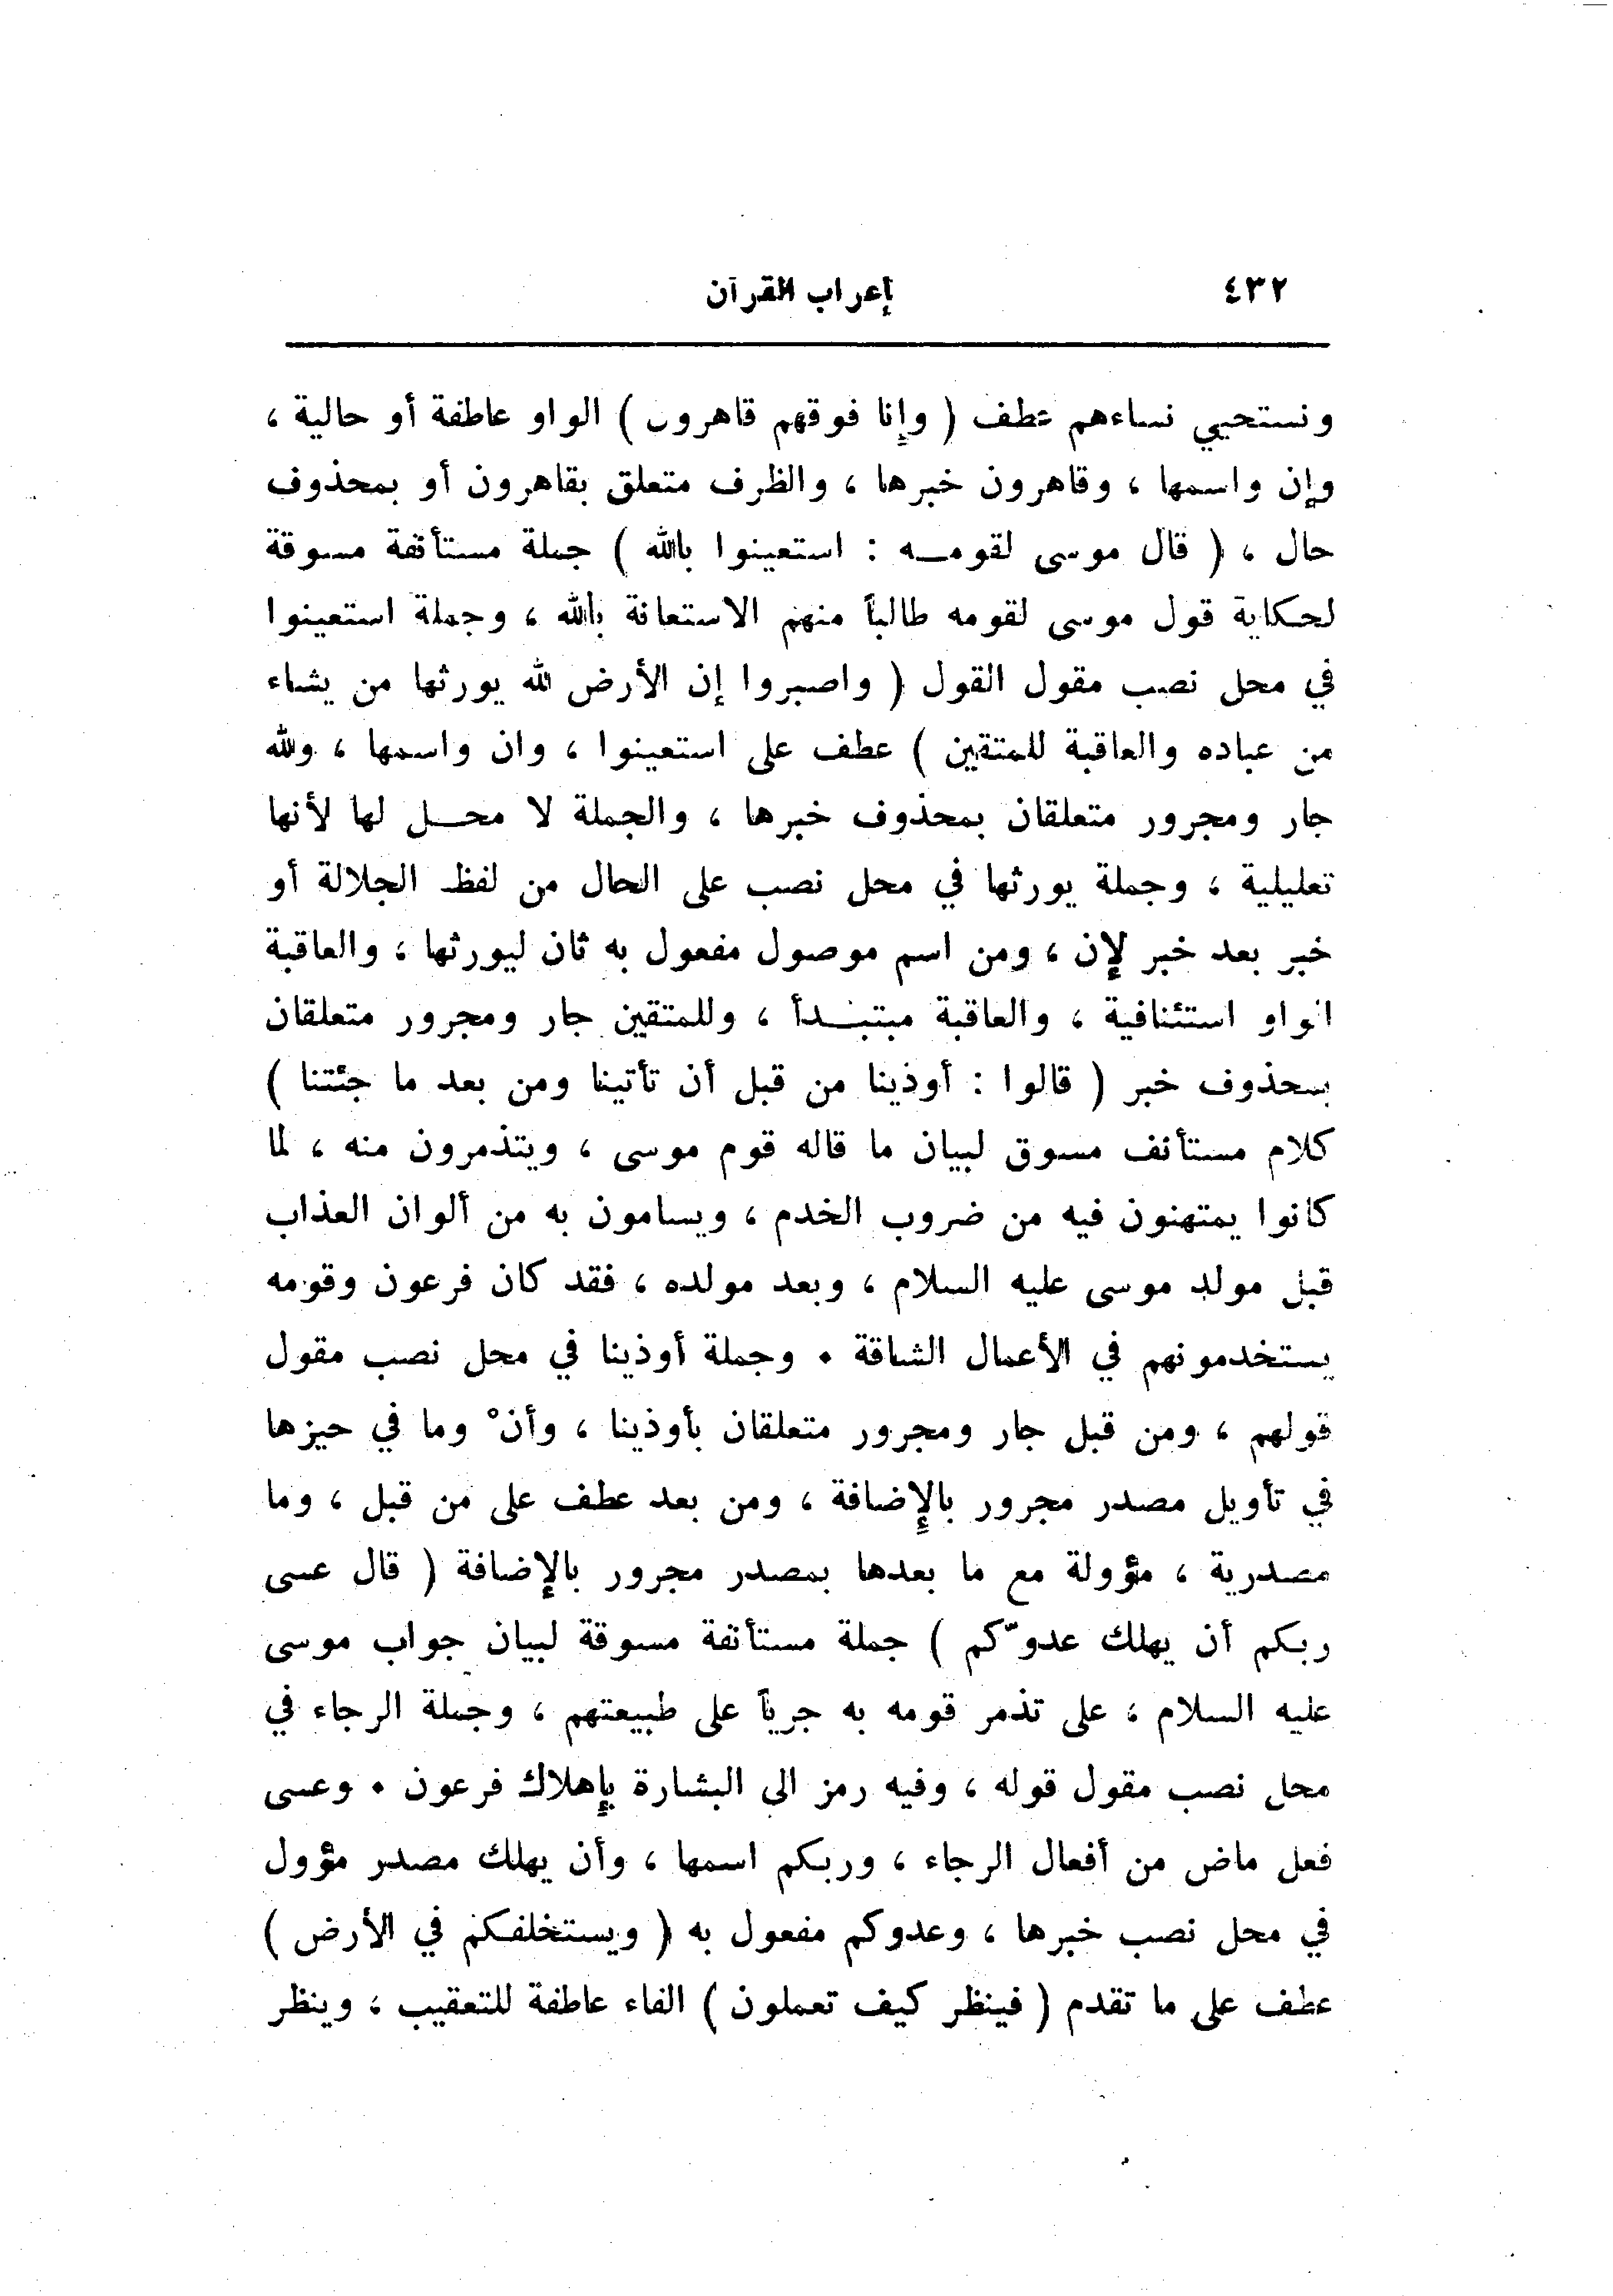 ٤٣٢ إعراب القرآن
ونستحيي نساءهم عطف ( وإنا فوقهم قاهرون ) الواو عاطفة أو حالية ،
وإن واسمها ، وقاهرون خبرها ، والظرف متعلق بقاهرون أو بمحذوف
حال ، ( قال موسى لقومه : استعينوا بالله ) جملة مستأنفة مسوقة
لحكاية قول موسى لقومه طالباً منهم الاستعانة بالله ، وجملة استعينوا
في محل نصب مقول القول ( واصبروا إن الأرض لله يورثها من يشاء
من عباده والعاقبة للمتقين ) عطف على استعينوا ، وان واسمها ، ولله
جار ومجرور متعلقان بمحذوف خبرها ، والجملة لا محل لها لأنها
تعليلية ، وجملة يورثها في محل نصب على الحال من لفظ الجلالة أو
خبر بعد خبر لإن ، ومن اسم موصول مفعول به ثان ليورثها ، والعاقبة
الواو استئنافية ، والعاقبة مبتدأ ، وللمتقين جار ومجرور متعلقان
بمحذوف خبر ( قالوا : أوذينا من قبل أن تأتينا ومن بعد ما جئتنا )
كلام مستأنف مسوق لبيان ما قاله قوم موسى ، ويتذمرون منه ، لما
كانوا يمتهنون فيه من ضروب الخدم ، ويسامون به من ألوان العذاب
قبل مولد موسى عليه السلام ، وبعد مولده ، فقد كان فرعون وقومه
يستخدمونهم في الأعمال الشاقة . وجملة أوذينا في محل نصب مقول
قولهم ، ومن قبل جار ومجرور متعلقان بأوذينا ، وأنْ وما في حيزها
في تأويل مصدر مجرور بالإضافة ، ومن بعد عطف على من قبل ، وما
مصدرية ، مؤولة مع ما بعدها بمصدر مجرور بالإضافة ( قال عسى
ربكم أن يهلك عدوّكم ) جملة مستأنفة مسوقة لبيان جواب موسى
عليه السلام ، على تذمر قومه به جرياً على طبيعتهم ، وجملة الرجاء في
محل نصب مقول قوله ، وفيه رمز الى البشارة بإهلاك فرعون . وعسى
فعل ماض من أفعال الرجاء ، وربكم اسمها ، وأن يهلك مصدر مؤول
في محل نصب خبرها ، وعدوكم مفعول به ( ويستخلفكم في الأرض )
عطف على ما تقدم ( فينظر كيف تعملون ) الفاء عاطفة للتعقيب ، وينظر